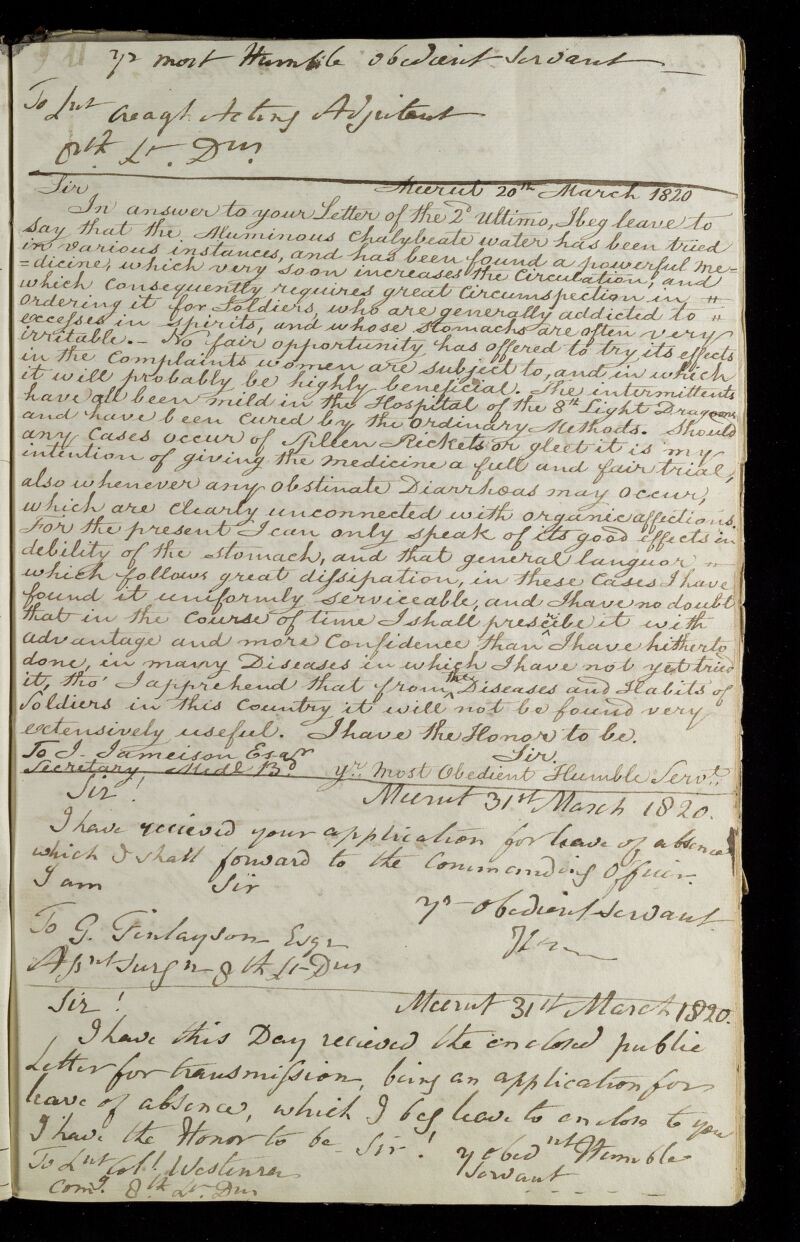 yr most Humble obedient Servant
To Lut Creagh Acting Adjutent
8th Lt. Dns.
Sir Meerut 20th March 1820
In answer to your Letter of the 2d Ultimo, I beg leave to
say that the Aluminous Chalybeate water has been tried
in various instances, and has been found a powerful me=
=dicine, which very soon increases the Circulation, and
which consequently requires great Circumspection in "
ordering it for Soldiers, who are generally addicted to "
excesses in Spirits, and whose Stomachs are often very
irritable. - No fair opportunity has offered to try its effects
in the Complaints women are subject to, and in which
it will probably be highly beneficial. The intermittents
have all been mild in the Hospital of the 8th Light Dragoons
and have been cured by the ordinary Methods. Should
any Cases occur of Spleen Rickets or gleet it is my
intention of giving the medicine a full and fair trial,
also whenever any obstinate Diarrhœas may occur,
which are clearly unconnected with organic affections.
For the present I can only speak of its good effects in
debility of the Stomach, and that general languor "
which follows great dissipation, in these Cases I have
found it uniformly serviceable, and I have no doubt
that in the course of time I shall prescribe it with
advantage and more Confidence than I have hitherto
done, in many Diseases in which I have not yet tried
it, tho' I apprehend that from the Diseases and Habits of
Soldiers in this Country it will not be found very
extensively useful. I have the Honor to be.
To J. Jameison Esqr Sir.
Secretary Medl Bd yr. Most Obedient Humble Servt.
Sir! Meerut 31st March 1820.
I have recieved your application for leave of absence
which I shall forward to the Commanding Officer.
I am Sir
yr obedient Servant
To G. Finlayson Esqr
Assnt Surgn 8th Lt Dns
Sir! Meerut 31st March 1820.
I have this Day recieved the enclosed public
Letter for transmission, being an application for
leave of absence, which I beg leave to enclose to you
I have the Honor to be Sir! y obednt Humble
Servant
To Lut Coll. Westenra
Comg. 8th Lt. Dns